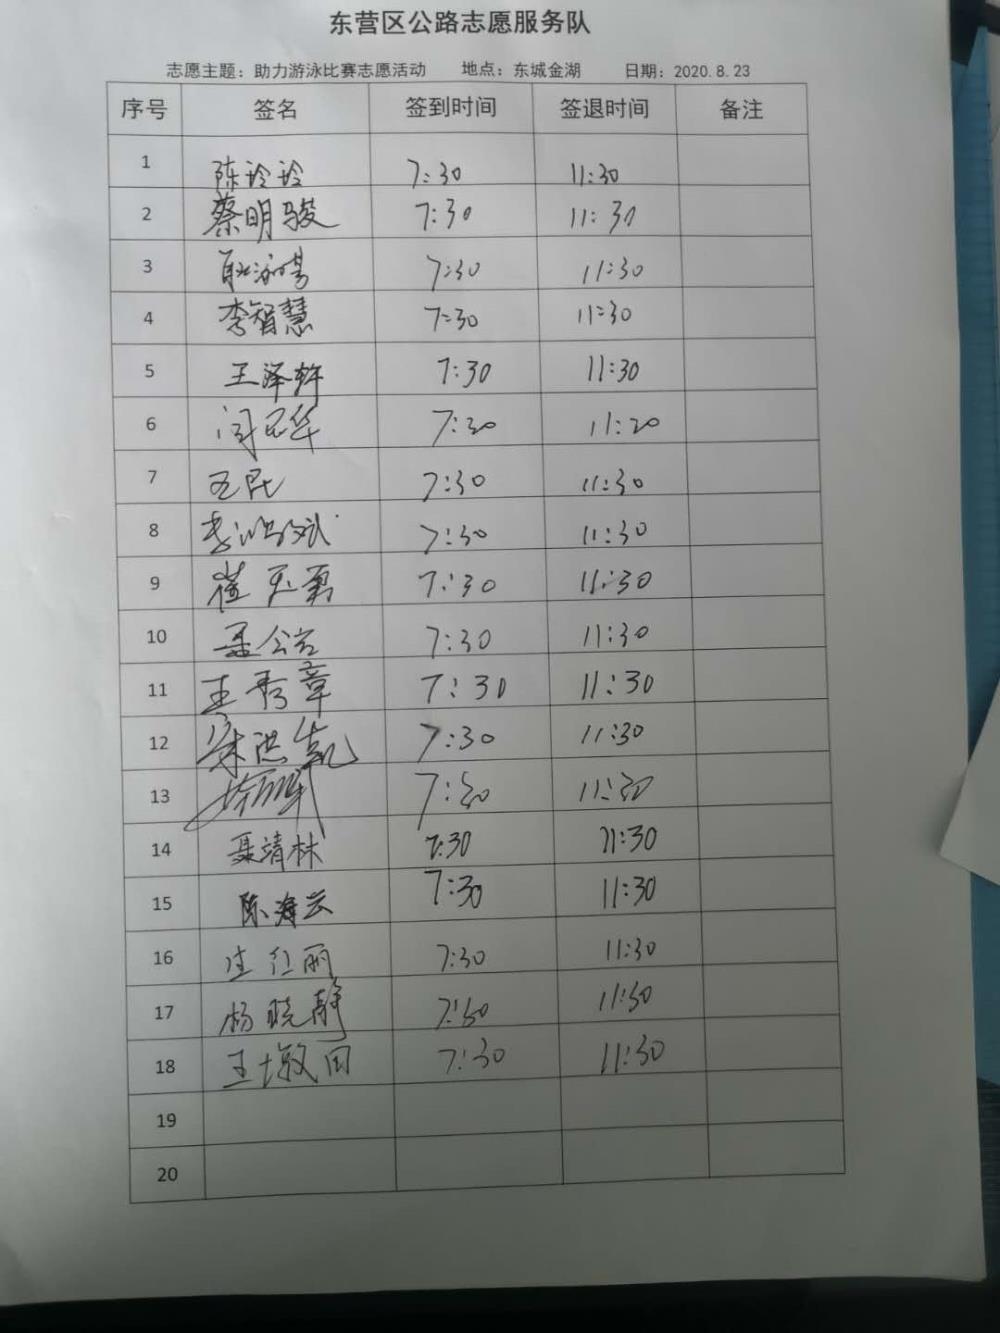 东营区公路志愿服务队
志愿主题：助力游泳比赛志愿活动 地点：东城金湖 日期：2020.8.23
序号 签名 签到时间 签退时间 备注
1 陈玲玲 7:30 11:30
2 蔡明骏 7:30 11:30
3 耿泳 7:30 11:30
4 李智慧 7:30 11:30
5 王泽 7:30 11:30
6 华 7:30 11:30
7 王昆 7:30 11:30
8 李鸿斌 7:30 11:30
9 崔玉勇 7:30 11:30
10 聂公 7:30 11:30
11 王秀章 7:30 11:30
12 宋洪凯 7:30 11:30
13 7:30 11:30
14 聂靖林 7:30 11:30
15 陈海云 7:30 11:30
16 红丽 7:30 11:30
17 杨晓静 7:30 11:30
18 王墩田 7:30 11:30
19
20